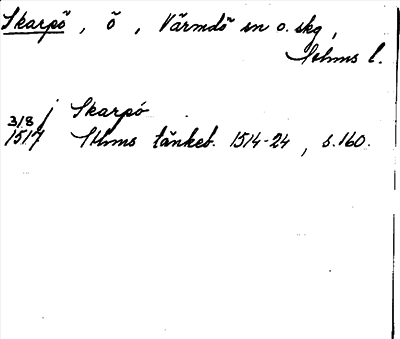 Skarpö, ö, Värmdö sn o. skg,
Sthms l.
j Skarpö
3/8 1517 Sthms tänkeb. 1514-24, s. 160.